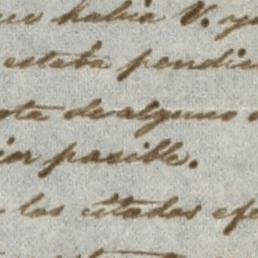 habia V. y
estaba pendie
de alguno
posible.
los citados efe